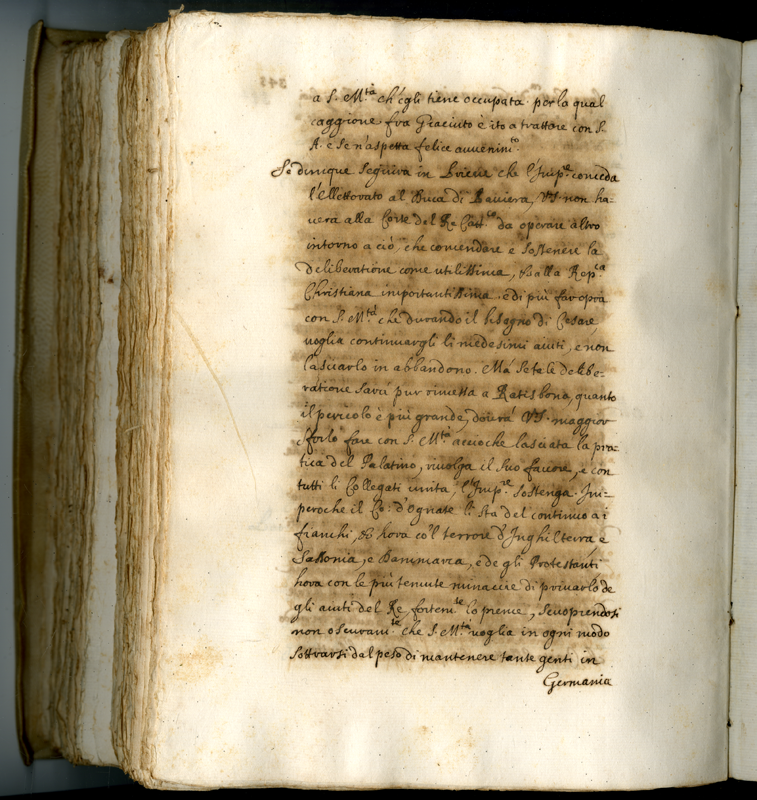 a S. M.tà ch'egli tiene occupata. per la qual
caggione fra Giacinto è ito a trattare con S.
A. e se n'aspetta felice auuenim.to
Se dunque seguiua in brieue che l'Imp.re conceda
l'Elettorato al Duca di Bauiera, V.S. non ha-
uerà alla Corte del Re Catt.co da operare altro
intorno a ciò, che comendare e sostenere la
deliberatione come utilissima, et alla Rep.ca
Christiana importantissima. e di più far opra
con S. M.tà che durando il bisogno di Cesare,
uoglia continuargli li medesimi aiuti, e non
lasciarlo in abbandono. Ma se tale delibe-
ratione sarà pur rimessa a Ratisbona, quanto
il pericolo è più grande, dourà V.S. maggior
sforzo fare con S. M.tà acciòche lasciata la pra-
tica del Palatino, riuolga il suo fauore, e con
tutti li Collegati unita, l'Imp.re sostenga. Im-
peroche il Co: d'Ognate li sta del continuo a i
fianchi, et hora co'l terrore d'Inghilterra, e
Sassonia, e Danimarca, e de gli Protestanti
hora con le più temute minaccie di priuarlo de
gli aiuti del Re, fortem.te lo preme, scuoprendosi
non oscuram.te che S. M.tà uoglia in ogni modo
sottrarsi dal peso di mantenere tante genti in
Germania